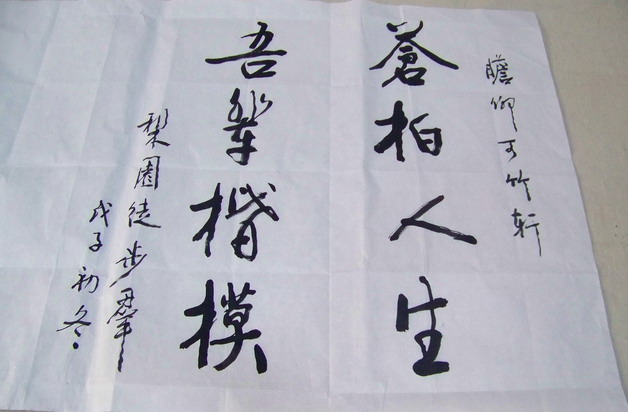 瞻仰可竹轩
蒼柏人生
吾辈楷模
梨園徒步羣
戊子初冬